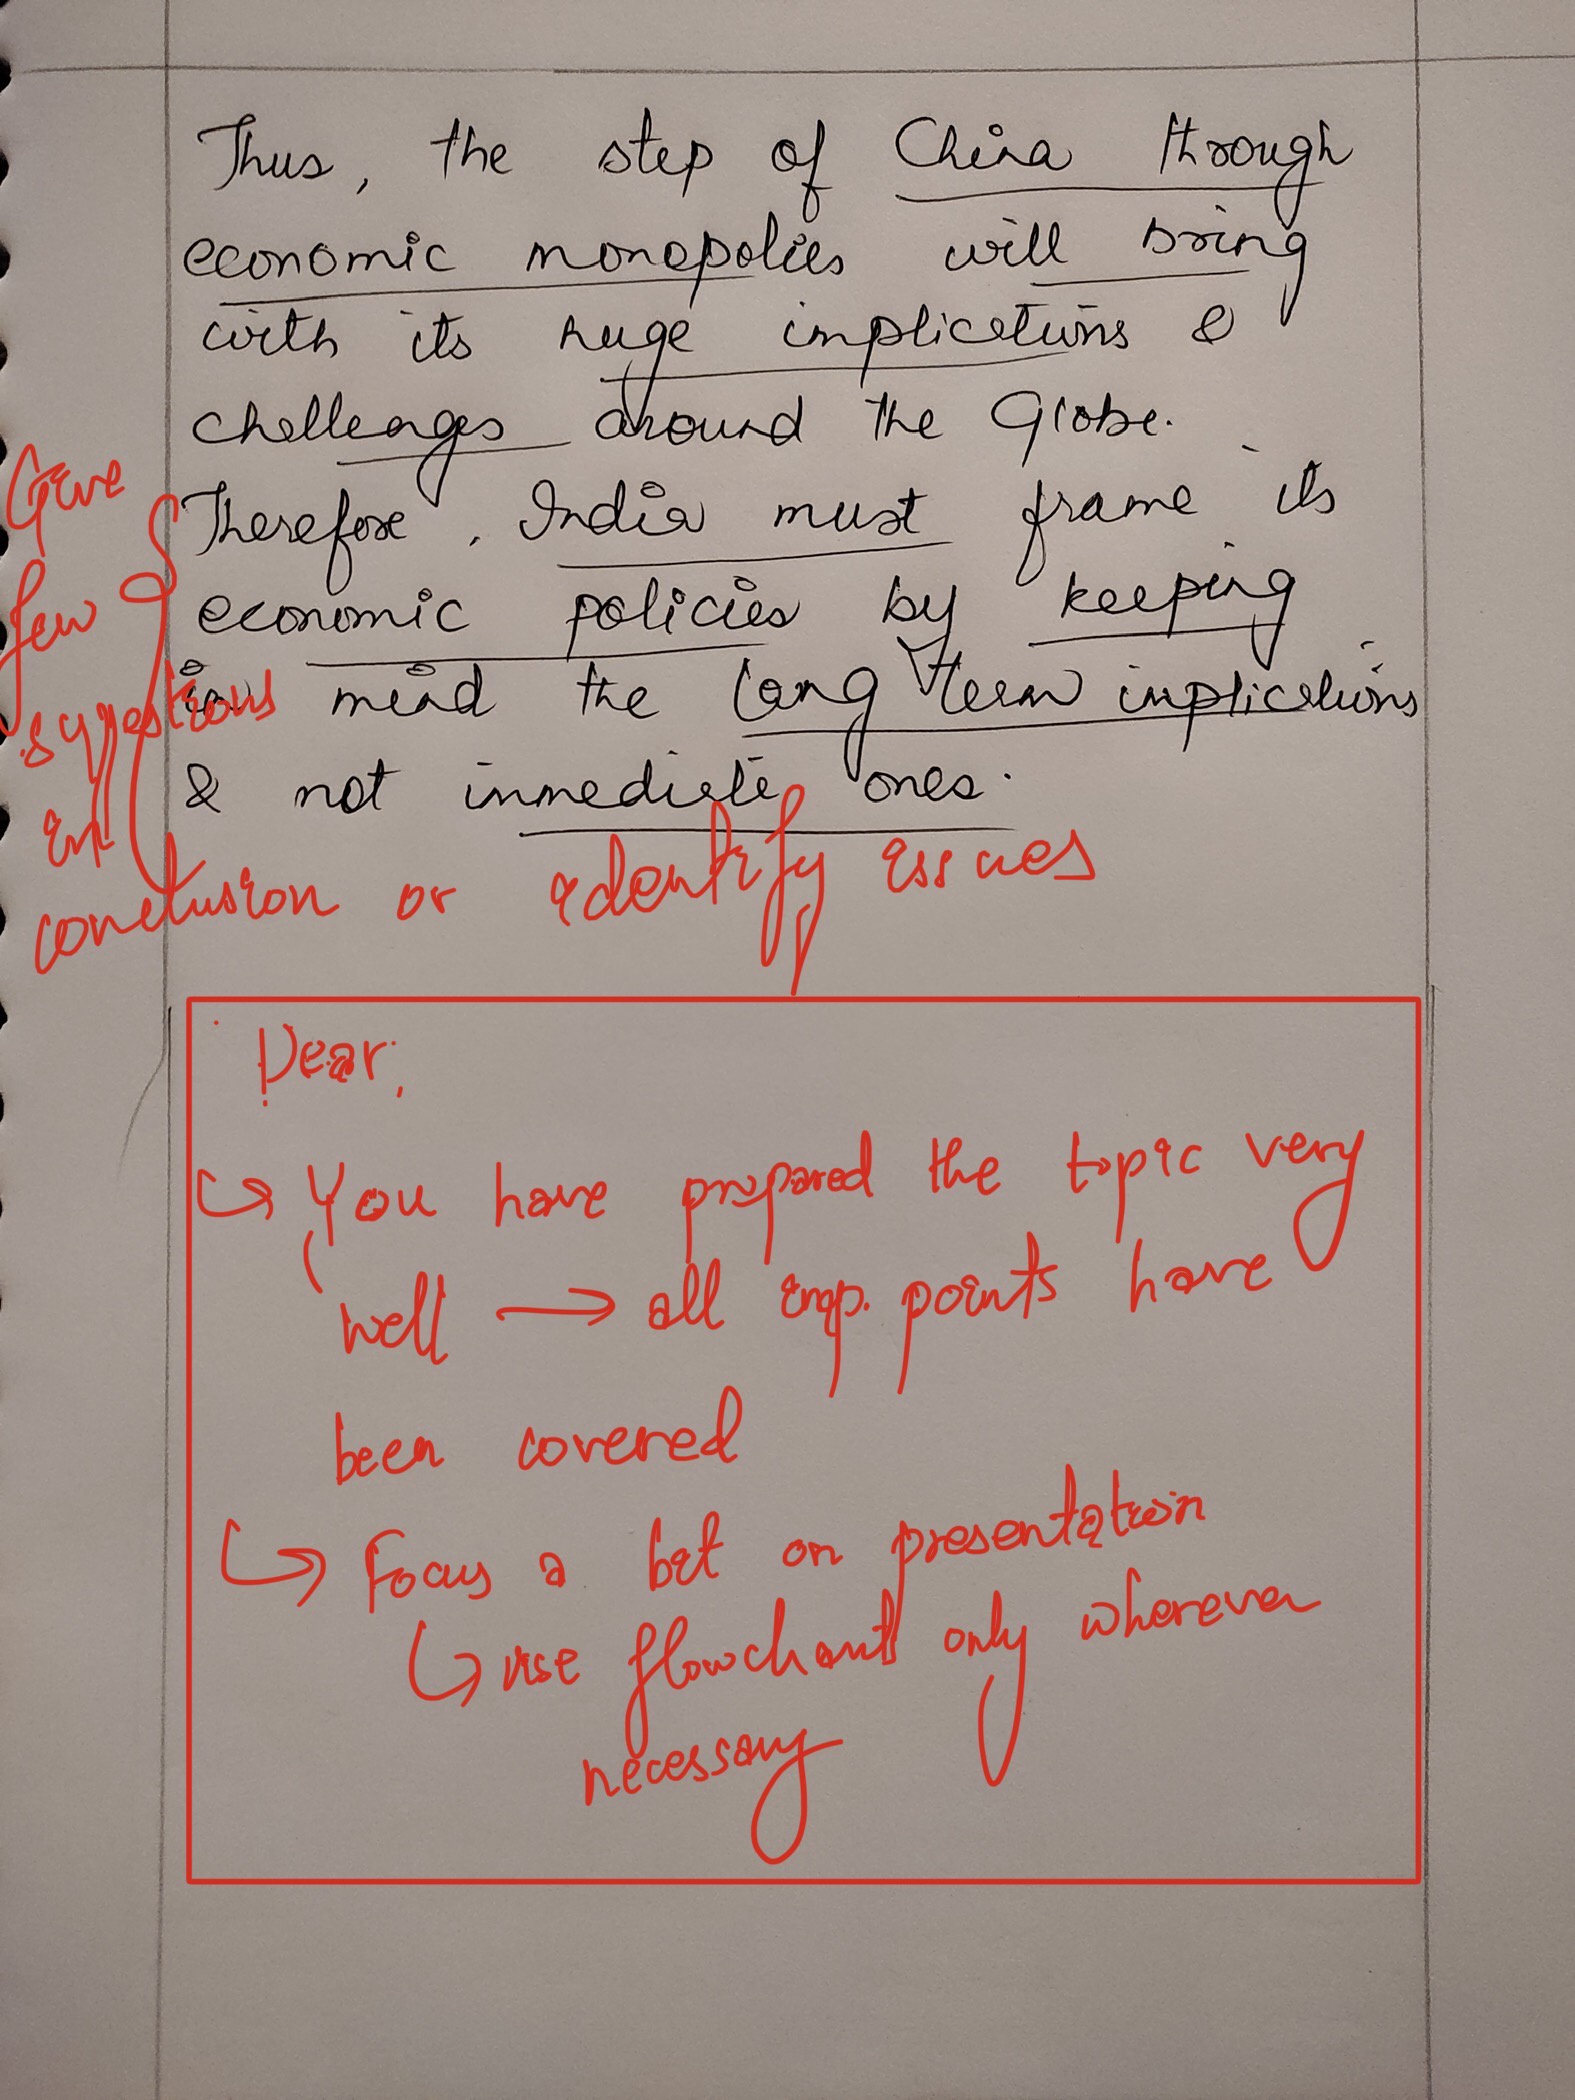 Thus, the step of China through
economic monopolies will bring
with its huge implications &
challenges around the Globe.
Therefore, India must frame its
economic policies by keeping
in mind the long term implications
& not immediate ones.
Give
few
suggestions
in
conclusion or identify issues
Dear,
↪ You have prepared the topic very
well → all imp. points have
been covered
↪ Focus a bit on presentation
↪ use flowchart only wherever
necessary